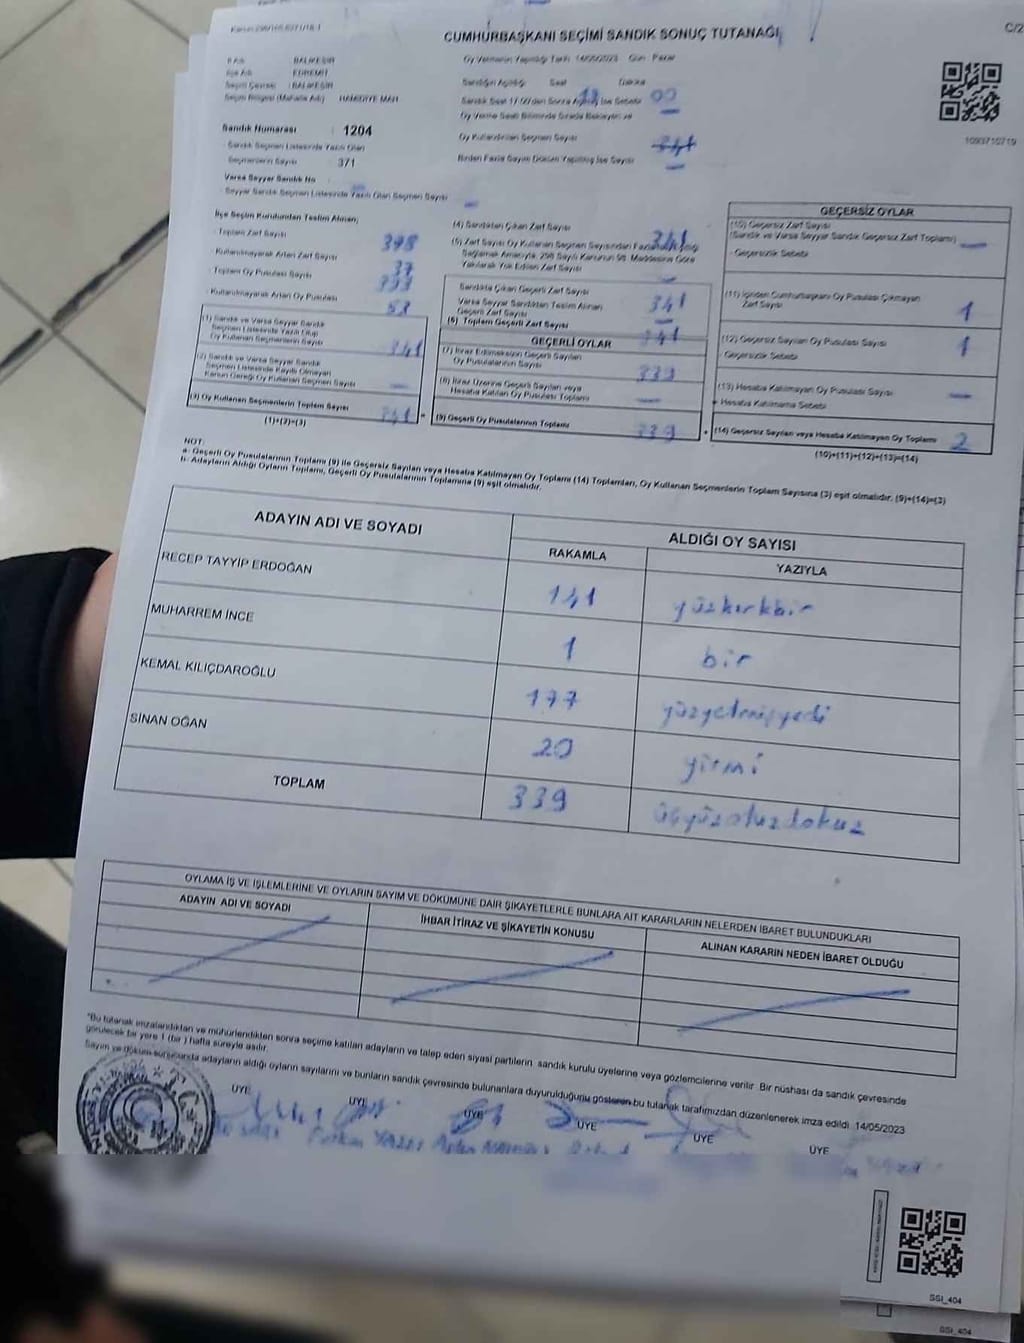 CUMHURBAŞKANI SEÇİMİ SANDIK SONUÇ TUTANAĞI
C/2
İl Adı : BALIKESİR
İlçe Adı : EDREMİT
Seçim Çevresi : BALIKESİR
Seçim Bölgesi (Mahalle Adı) : HAMİDİYE MAH
Oy Vermenin Yapıldığı Tarih 14/05/2023 Gün Pazar
Sandığın Açıldığı Saat Dakika
Sandık Saat 17:00'den Sonra Açılmış İse Sebebi
1093710719
Sandık Numarası : 1204
Sandık Seçmen Listesinde Yazılı Olan
Seçmenlerin Sayısı : 371
Oy Kullandırılan Seçmen Sayısı 341
Birden Fazla Sayım Döküm Yapılmış İse Sayısı
Varsa Seyyar Sandık No
Seyyar Sandık Seçmen Listesinde Yazılı Olan Seçmen Sayısı
İlçe Seçim Kurulundan Teslim Alınan;
Toplam Zarf Sayısı 398
Kullanılmayarak Artan Zarf Sayısı
Toplam Oy Pusulası Sayısı
Kullanılmayarak Artan Oy Pusulası
(1) Sandık ve Varsa Seyyar Sandık
Seçmen Listesinde Yazılı Olup
Oy Kullanan Seçmenlerin Sayısı 341
(2) Sandık ve Varsa Seyyar Sandık
Seçmen Listesinde Kayıtlı Olmayan
Kanun Gereği Oy Kullanan Seçmen Sayısı —
(3) Oy Kullanan Seçmenlerin Toplam Sayısı 341
(1)+(2)=(3)
(4) Sandıktan Çıkan Zarf Sayısı 341
(5) Zarf Sayısı Oy Kullanan Seçmen Sayısından Fazla ise Eşitliği
Sağlamak Amacıyla, 298 Sayılı Kanunun 98. Maddesine Göre
Yakılarak Yok Edilen Zarf Sayısı —
Sandıkta Çıkan Geçerli Zarf Sayısı 341
Varsa Seyyar Sandıktan Teslim Alınan
Geçerli Zarf Sayısı —
(6) Toplam Geçerli Zarf Sayısı 341
GEÇERLİ OYLAR
(7) İtiraz Edilmeksizin Geçerli Sayılan
Oy Pusulalarının Sayısı 339
(8) İtiraz Üzerine Geçerli Sayılan veya
Hesaba Katılan Oy Pusulası Toplamı —
(9) Geçerli Oy Pusulalarının Toplamı 339
GEÇERSİZ OYLAR
(10) Geçersiz Zarf Sayısı
(Sandık ve Varsa Seyyar Sandık Geçersiz Zarf Toplamı) —
- Geçersizlik Sebebi
(11) İçinden Cumhurbaşkanı Oy Pusulası Çıkmayan
Zarf Sayısı 1
(12) Geçersiz Sayılan Oy Pusulası Sayısı 1
- Geçersizlik Sebebi
(13) Hesaba Katılmayan Oy Pusulası Sayısı —
Hesaba Katılmama Sebebi
(14) Geçersiz Sayılan veya Hesaba Katılmayan Oy Toplamı 2
(10)+(11)+(12)+(13)=(14)
NOT:
a- Geçerli Oy Pusulalarının Toplamı (9) ile Geçersiz Sayılan veya Hesaba Katılmayan Oy Toplamı (14) Toplamları, Oy Kullanan Seçmenlerin Toplam Sayısına (3) eşit olmalıdır. (9)+(14)=(3)
b- Adayların Aldığı Oyların Toplamı, Geçerli Oy Pusulalarının Toplamına (9) eşit olmalıdır.
ADAYIN ADI VE SOYADI
ALDIĞI OY SAYISI
RAKAMLA YAZIYLA
RECEP TAYYİP ERDOĞAN 141 yüzkırkbir
MUHARREM İNCE 1 bir
KEMAL KILIÇDAROĞLU 177 yüzyetmişyedi
SİNAN OĞAN 20 yirmi
TOPLAM 339 üçyüzotuzdokuz
OYLAMA İŞ VE İŞLEMLERİNE VE OYLARIN SAYIM VE DÖKÜMÜNE DAİR ŞİKAYETLERLE BUNLARA AİT KARARLARIN NELERDEN İBARET BULUNDUKLARI
ADAYIN ADI VE SOYADI
İHBAR İTİRAZ VE ŞİKAYETİN KONUSU
ALINAN KARARIN NEDEN İBARET OLDUĞU
"Bu tutanak imzalandıktan ve mühürlendikten sonra seçime katılan adayların ve talep eden siyasi partilerin sandık kurulu üyelerine veya gözlemcilerine verilir. Bir nüshası da sandık çevresinde
görülecek bir yere 1 (bir) hafta süreyle asılır.
Sayım ve döküm sonucunda adayların aldığı oyların sayılarını ve bunların sandık çevresinde bulunanlara duyurulduğunu gösteren bu tutanak tarafımızdan düzenlenerek imza edildi. 14/05/2023
ÜYE ÜYE ÜYE ÜYE ÜYE ÜYE
SSI_404
SSI_404